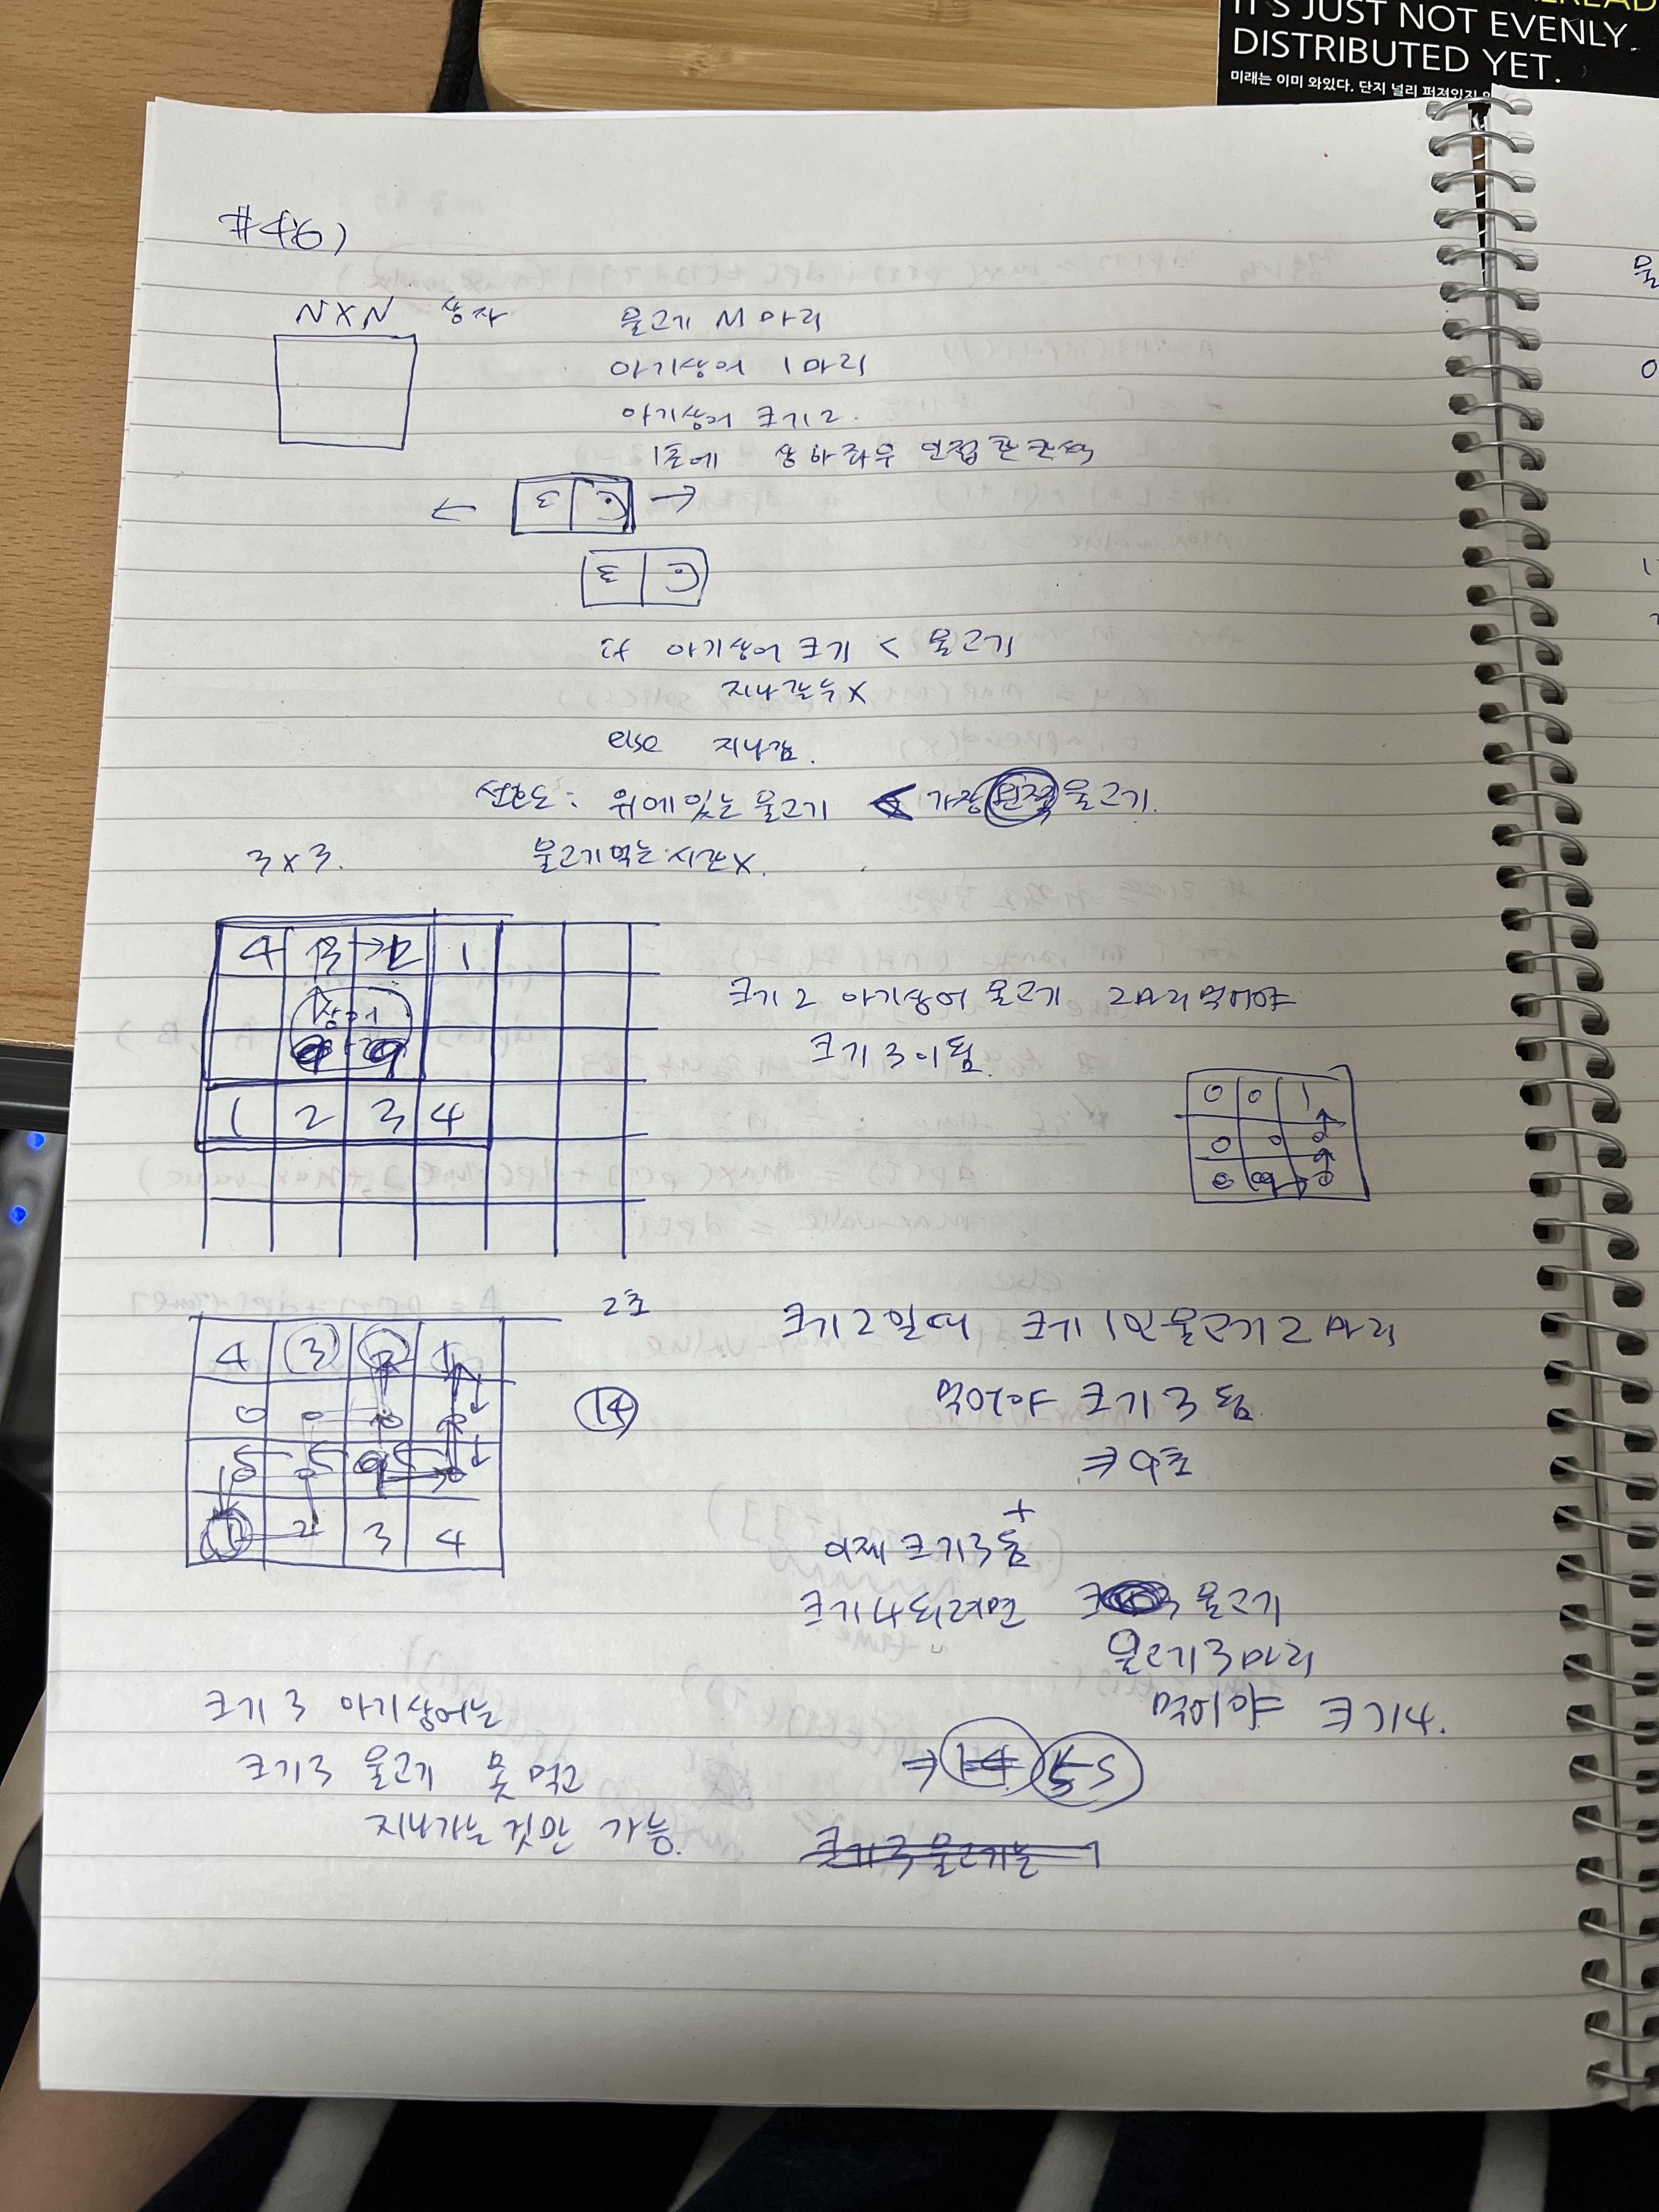 IT'S JUST NOT EVENLY
DISTRIBUTED YET.
미래는 이미 와있다. 단지 널리 퍼져있지
#46)
N X N 상자
물고기 M마리
아기상어 1마리
아기상어 크기 2.
1초에 상하좌우 인접한 칸씩
← →
if 아기상어 크기 < 물고기
지나갈수 X
else 지나감.
위에있는 물고기 < 가장 왼쪽 물고기.
3 x 3.
물고기 먹는 시간 X.
4 3 → 2 1
상어
9 9
1 2 3 4
크기 2 아기상어 물고기 2마리 먹어야
크기 3이 됨.
0 0 1
0 0 0
0 9 0
2초
4 3 2 1
0 0 0 0
1 2 3 4
14
크기 2일때 크기 1인 물고기 2마리
먹어야 크기 3 됨
⇒ 9초
+
이제 크기 3 됨
크기 4 되려면 3 물고기
물고기 3마리
먹어야 크기 4.
⇒ 14
크기 3 아기상어는
크기 3 물고기 못 먹고
지나가는 것만 가능.
크기 3 물고기는